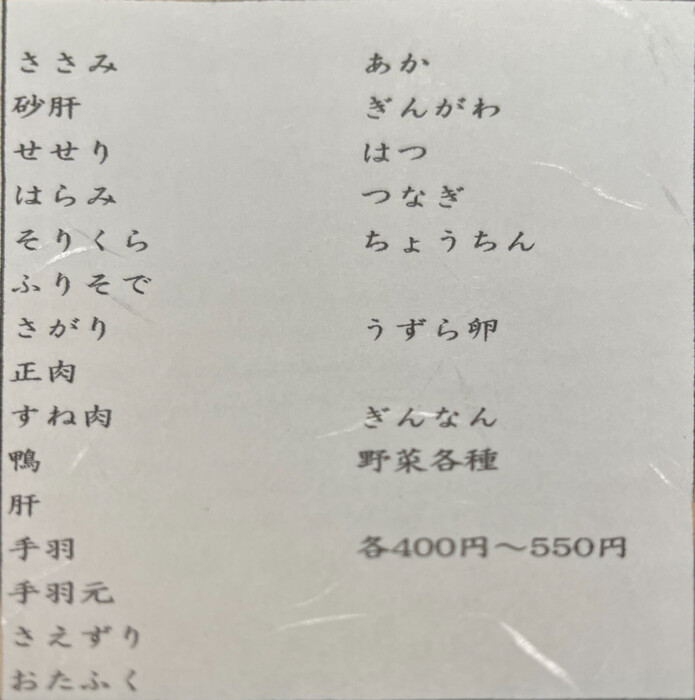 ささみ
砂肝
せせり
はらみ
そりくら
ふりそで
さがり
正肉
すね肉
鴨
肝
手羽
手羽元
さえずり
おたふく
あか
ぎんがわ
はつ
つなぎ
ちょうちん
うずら卵
ぎんなん
野菜各種
各400円～550円